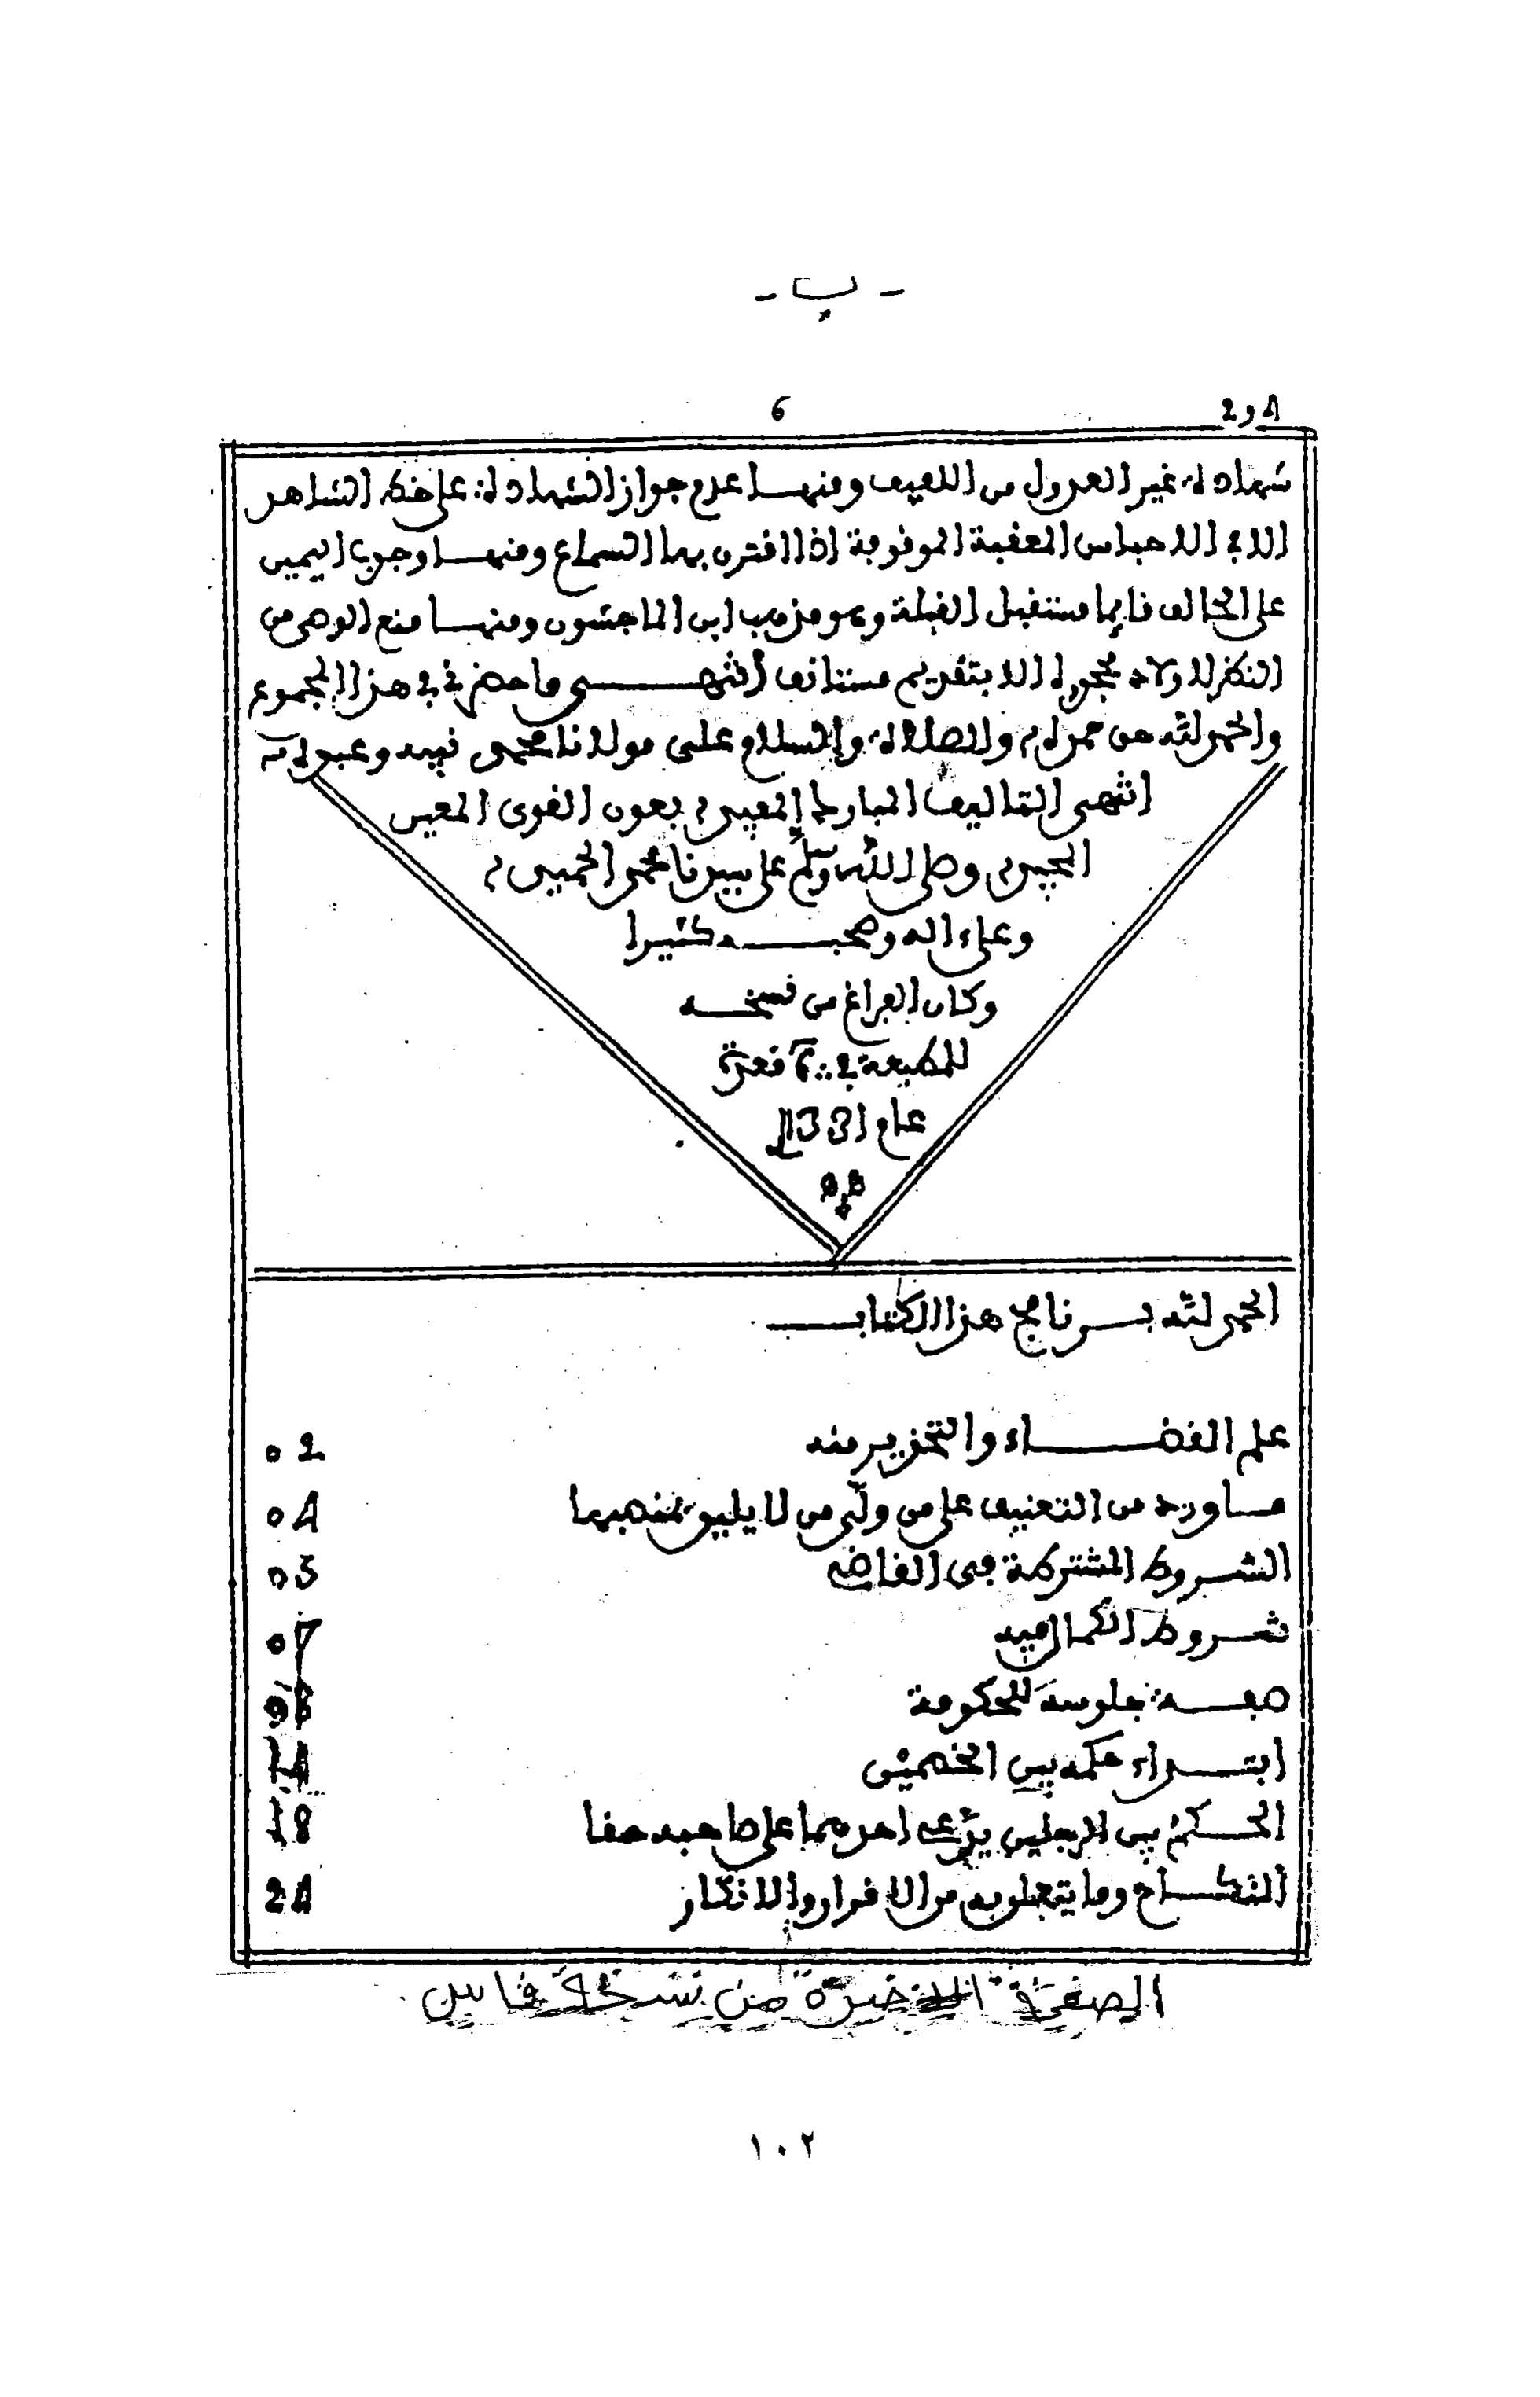 - ب -
2 و 4 6
شهادة غير العدول من اللفيف ومنها عدم جواز الشهادة على خط الشاهد
الا في الاحباس المعقبة الموقوفة اذا اقترن بها السماع ومنها وجوب اليمين
على الحالف قائما مستقبل القبلة وهو مذهب ابن الماجشون ومنها منع الوصي من
النظر لاولاد محجوره الا بتقديم مستانف انتهى ما حضرني في هذا المجموع
والحمد لله حق حمده والصلاة والسلام على مولانا محمد نبيه وعبده
انتهى التاليف المبارك المعين بعون القوى المعين
وصلى الله وسلم على سيدنا محمد
وعلى ءاله وصحبه كثيرا
وكان الفراغ من نسخه
للمطبعة في قعدة
عام 1331
الحمد لله برنامج هذا الكتاب
علم القضاء والتحذير منه 02
ما ورد من التعنيف على من ولّى من لا يليق بمنصبها 04
الشروط المشتركة في القاضي 05
شروط الكمال فيه 07
صفة جلوسه للحكومة 08
ابتداء حكمه بين الخصمين 14
الحكم بين الرجلين يدّعي احدهما على صاحبه حقا 18
النكاح وما يتعلق به من الاقرار والانكار 24
الصفحة الأخيرة من نسخة فاس
١٠٢